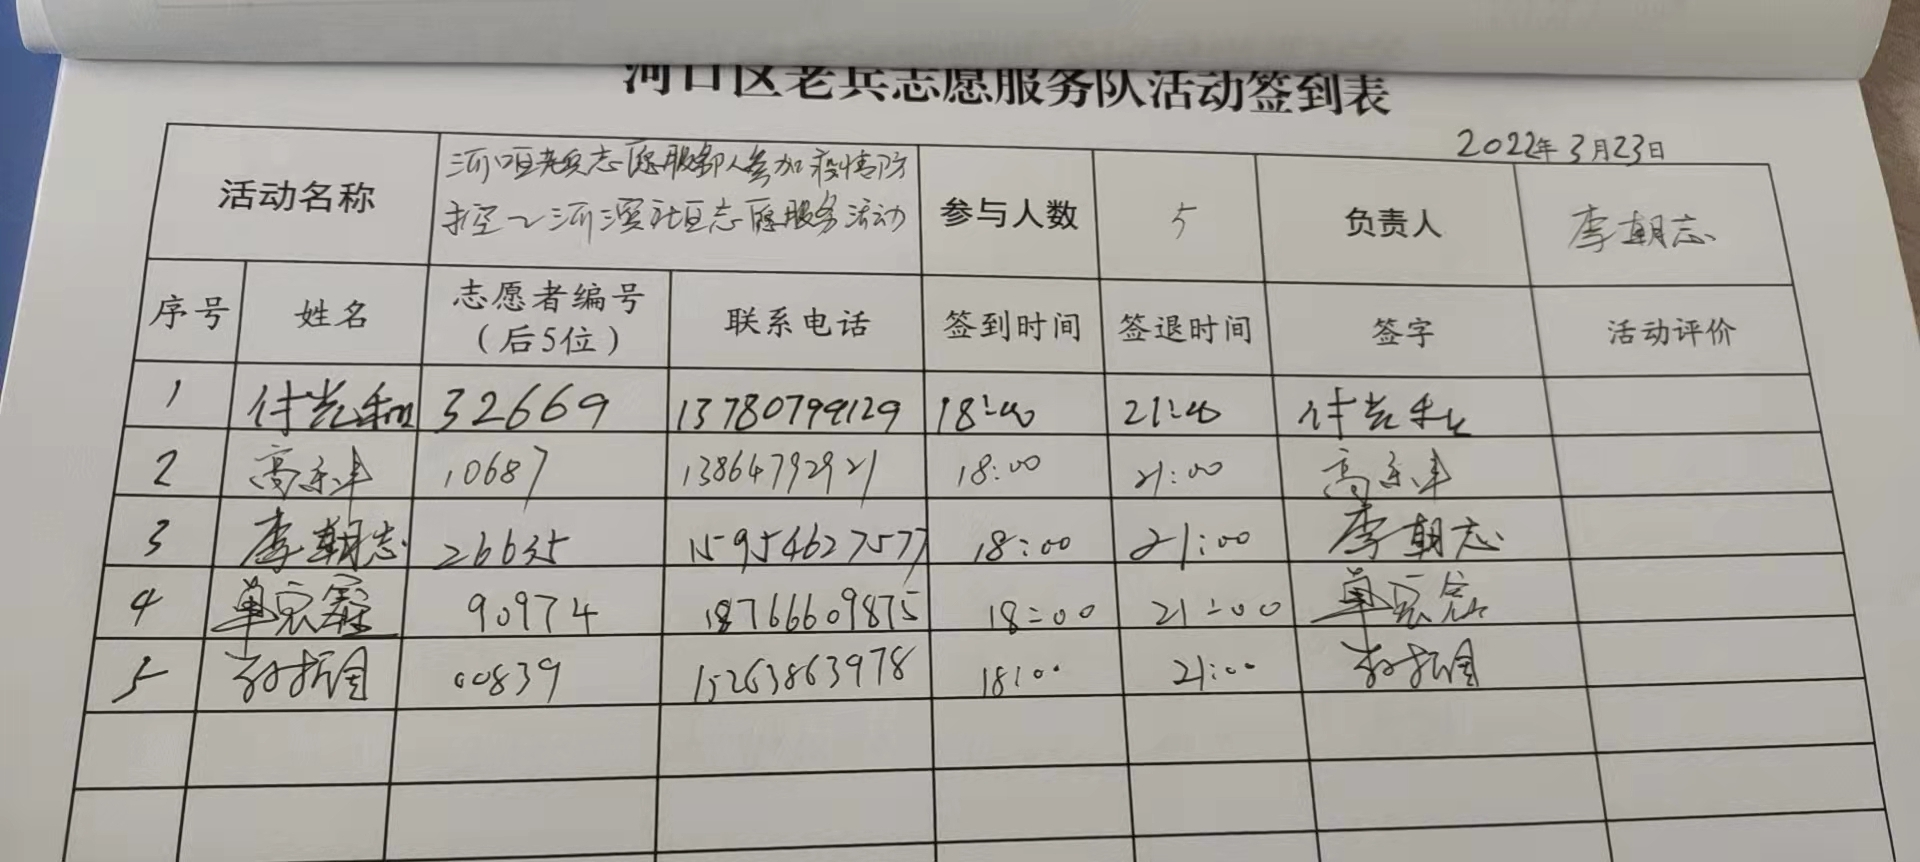 河口区老兵志愿服务队活动签到表
2022年3月23日
活动名称 河口区老兵志愿服务队人参加疫情防 参与人数 5 负责人 李朝志
控~河滨社区志愿服务活动
序号 姓名 志愿者编号 联系电话 签到时间 签退时间 签字 活动评价
(后5位)
1 付光和 32669 13780799129 18:00 21:00 付光和
2 高 10687 13864792921 18:00 21:00 高
3 李朝志 26635 15954627577 18:00 21:00 李朝志
4 单 90974 18766609875 18:00 21:00 单
5 00839 15263863978 18:00 21:00